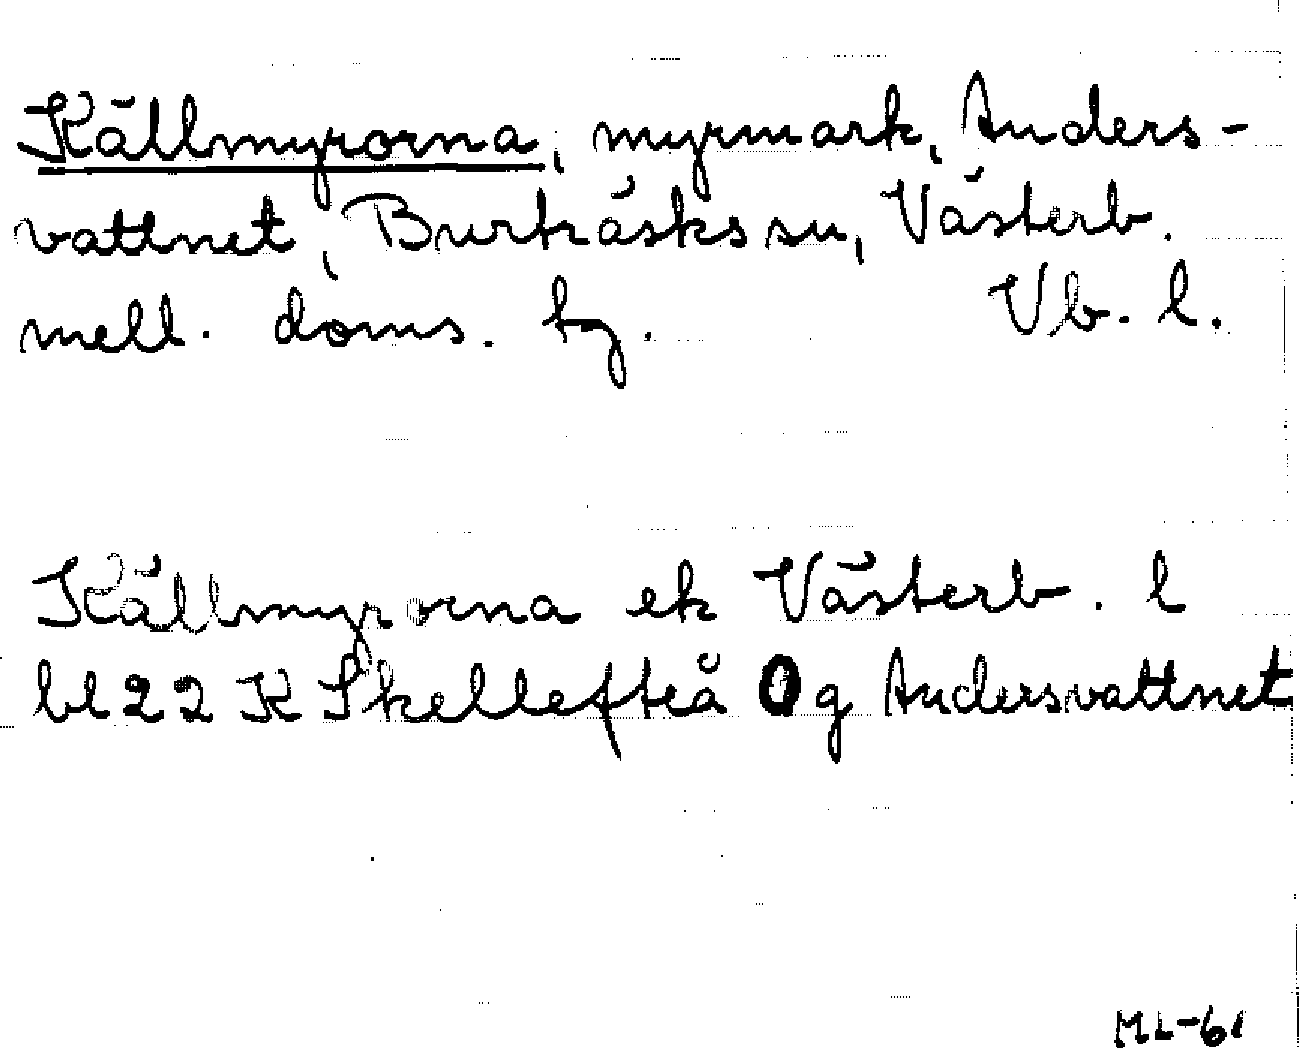 Källmyrorna, myrmark, Anders-
vattnet, Burträsks sn, Västerb.
mell. doms. tg. Vb. l.
Källmyrorna ek Västerb. l
bl 22 K Skellefteå Og Andersvattnet
ML-61